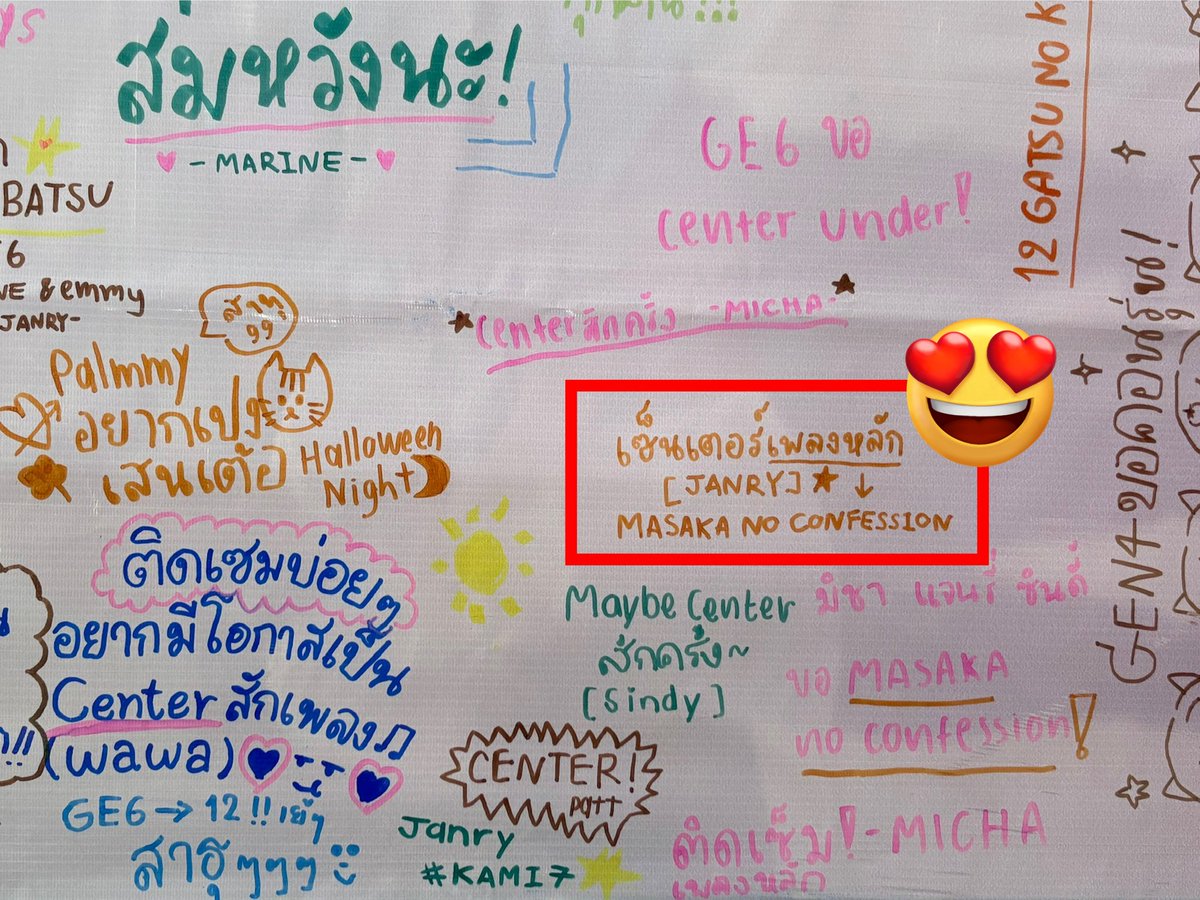 สมหวังนะ!
- MARINE -
BATSU
6
& emmy
JANRY-
GE6 ขอ
center under!
center สักครั้ง -MICHA-
12 GATSU NO K
GEN4 ขอคอนรุ่น!
สาธุ
Palmmy
อยากเปง
เสนเต้อ
Halloween
Night
เซ็นเตอร์เพลงหลัก
[JANRY] ★ ↓
MASAKA NO CONFESSION
ติดเซมบ่อยๆ
อยากมีโอกาสเป็น
Center สักเพลง
(wawa)
Maybe Center
สักครั้ง~
[Sindy]
มิชา แจนรี่ ซินดี้
ขอ MASAKA
no confession!
CENTER!
patt
GE6 → 12!! เย้ๆ
สาธุๆๆๆ
Janry
#KAMI7
ติดเซ็ม! -MICHA
เพลงหลัก